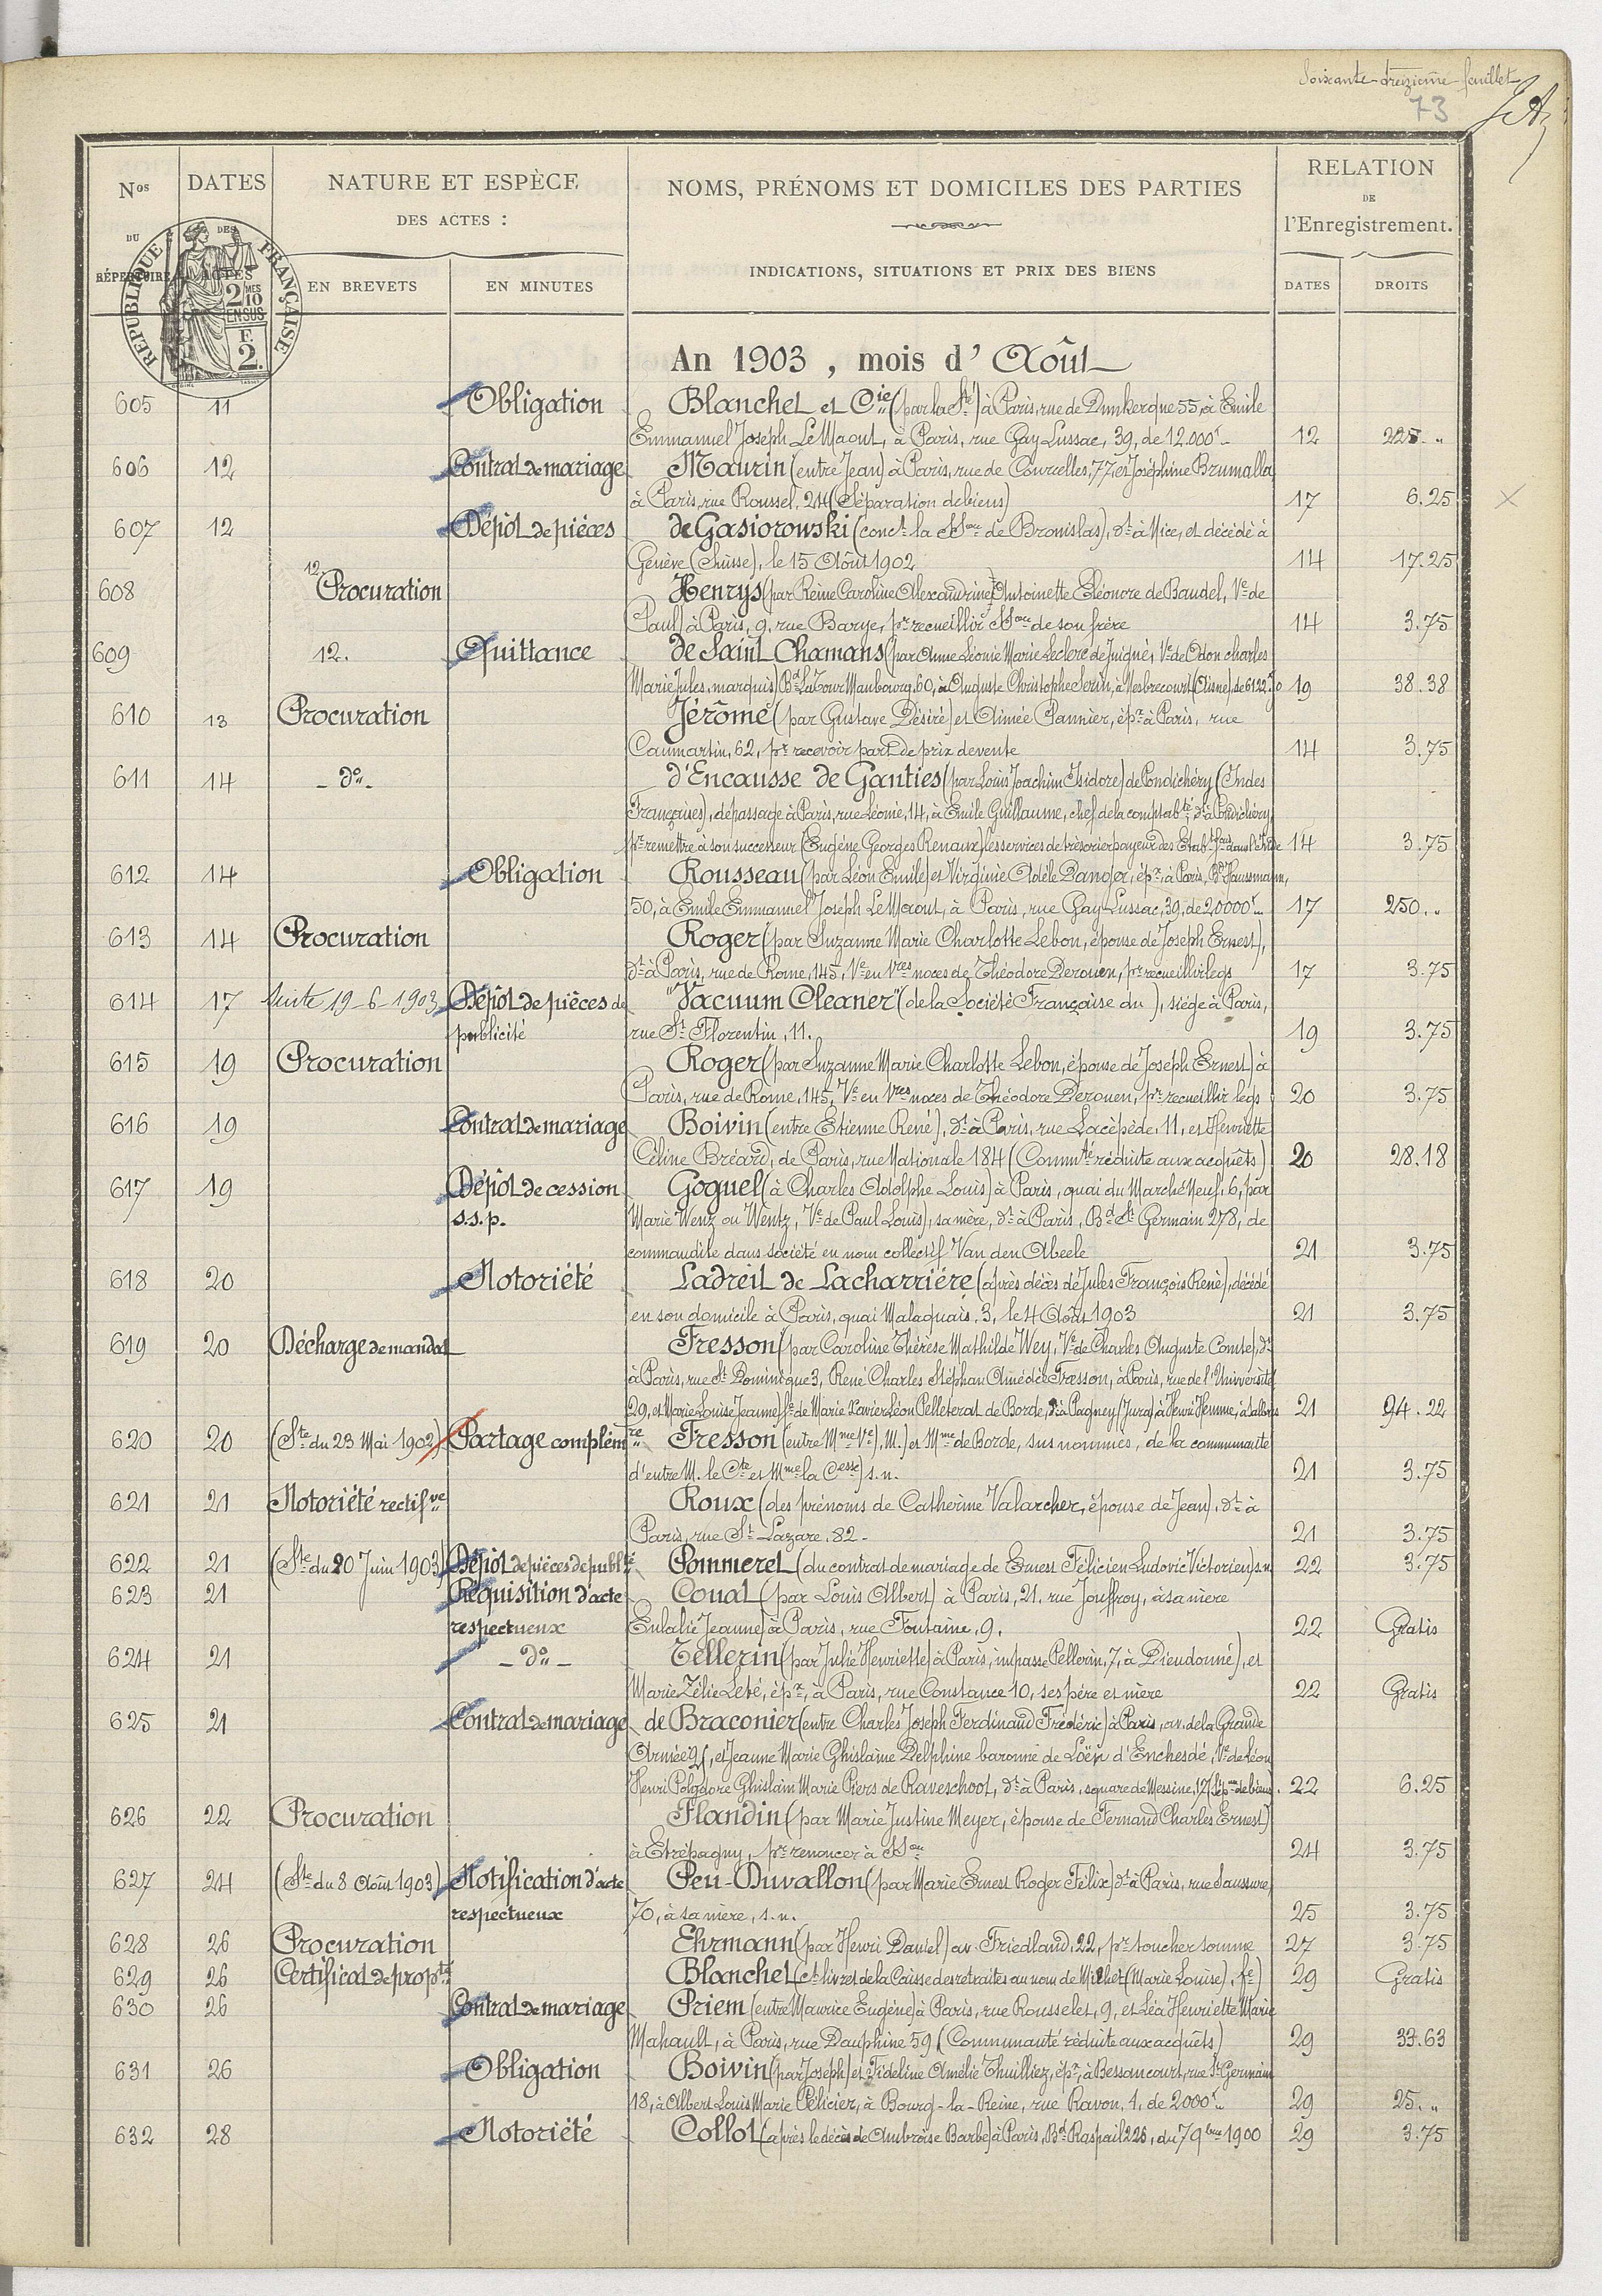 Soixante-treizième feuillet
73
Nos DU RÉPERTOIRE
DATES
NATURE ET ESPÈCE DES ACTES :
EN BREVETS
EN MINUTES
NOMS, PRÉNOMS ET DOMICILES DES PARTIES
INDICATIONS, SITUATIONS ET PRIX DES BIENS
RELATION DE l'Enregistrement.
DATES
DROITS
RÉPUBLIQUE FRANÇAISE
DES
ACTES
2 MES 10
EN SUS
F. 2.
An 1903, mois d'Août
605 11 Obligation Blanchet et Cie (par la Sté) à Paris, rue de Dunkerque 55, à Emile
Emmanuel Joseph Le Maout, à Paris, rue Gay Lussac, 39, de 12.000f 12 225. "
606 12 Contrat de mariage Maurin (entre Jean) à Paris, rue de Courcelles, 77 et Joséphine Brumalla
à Paris, rue Roussel, 24 (Séparation de biens) 17 6.25
607 12 Dépôt de pièces de Gasiorowski (conct la Sson de Bronislas), dt à Nice, et décédé à
Genève (Suisse), le 15 Août 1902 14 17.25
608 12. Procuration Henrys (par Reine Caroline Alexandrine Antoinette Eléonore de Baudel, Ve de
Paul) à Paris, 9, rue Barye, pr recueillir Sson de son frère 14 3.75
609 12. Quittance de Saint Chamans (par Anne Léonie Marie Leclerc de Juigné, Ve de Odon Charles
Marie Jules, marquis) Bd LaTour Maubourg, 60, à Auguste Christophe Serin, à Nesbrecourt (Aisne), de 6122f 19 38.38
610 13 Procuration Jérôme (par Gustave Désiré) et Aimée Pannier, épx à Paris, rue
Caumartin, 62, pr recevoir part de prix de vente 14 3.75
611 14 - do - d'Encausse de Ganties (par Louis Joachim Isidore) de Pondichéry (Indes
Françaises), de passage à Paris, rue Léonie, 14, à Emile Guillaume, chef de la comptabté, dt à Pondichéry,
pr remettre à son successeur (Eugène Georges Renaux) les services de trésorier payeur des Etabts fçais dans l'Inde 14 3.75
612 14 Obligation Rousseau (par Léon Emile) et Virginie Adèle Danger, épx, à Paris, Bd Haussmann,
50, à Emile Emmanuel Joseph Le Maout, à Paris, rue Gay-Lussac, 39, de 20000f 17 250. "
613 14 Procuration Roger (par Suzanne Marie Charlotte Lebon, épouse de Joseph Ernest),
dt à Paris, rue de Rome, 145, Ve en 1res noces de Théodore Derouen, pr recueillir legs 17 3.75
614 17 Suite 19-6-1903 Dépôt de pièces de "Vacuum Cleaner" (de la Société Française du), siège à Paris,
publicité rue St Florentin, 11. 19 3.75
615 19 Procuration Roger (par Suzanne Marie Charlotte Lebon, épouse de Joseph Ernest) à
Paris, rue de Rome, 145, Ve en 1res noces de Théodore Derouen, pr recueillir legs 20 3.75
616 19 Contrat de mariage Boivin (entre Etienne René), dt à Paris, rue Lacépède, 11, et Henriette
Céline Bréard, de Paris, rue Nationale 184 (Commté réduite aux acquêts) 20 28.18
617 19 Dépôt de cession Goguel (à Charles Adolphe Louis) à Paris, quai du Marché Neuf, 6, par
s.s.p. Marie Wenz ou Wentz, Ve de Paul Louis), sa mère, dt à Paris, Bd St Germain 278, de
commandite dans société en nom collectif Van den Abeele 21 3.75
618 20 Notoriété Ladreit de Lacharrière (après décès de Jules François René), décédé
en son domicile à Paris, quai Malaquais, 3, le 4 Août 1903 21 3.75
619 20 Décharge de mandat Fresson (par Caroline Thérèse Mathilde Wey, Ve de Charles Auguste Comte), dt
à Paris, rue St Dominique 3, René Charles Stéphan Amédée Fresson, à Paris, rue de l'Université
29, et Marie Louise Jeanne) fe de Marie Xavier Léon Pelleterat de Borde, dt à Pagney (Jura), à Henri Hemme, à 21 94.22
620 20 (Ste du 23 Mai 1902) Partage complémre Fresson (entre Mme Ve), M.) et Mme de Borde, sus nommés, de la communauté
d'entre M. le Cte et Mme la Cesse) s.n. 21 3.75
621 21 Notoriété rectifve Roux (des prénoms de Catherine Valarcher, épouse de Jean), dt à
Paris, rue St Lazare, 82 - 21 3.75
622 21 (Ste du 20 Juin 1903) Dépôt de pièces de publté Pommeret (du contrat de mariage de Ernest Félicien Ludovic Victorien) s.n. 22 3.75
623 21 Réquisition d'acte Couat (par Louis Albert) à Paris, 21, rue Jouffroy, à sa mère
respectueux Eulalie Jeanne) à Paris, rue Fontaine, 9. 22 Gratis
624 21 - do - Tellerin (par Julie Henriette) à Paris, impasse Pellerin, 7, à Dieudonné), et
Marie Zélie Leté, épx, à Paris, rue Constance 10, ses père et mère 22 Gratis
625 21 Contrat de mariage de Braconier (entre Charles Joseph Ferdinand Frédéric) à Paris, av. de la Grande
Armée 2, et Jeanne Marie Ghislaine Delphine baronne de Loën d'Enchesdé, Ve de Léon
Henri Polydore Ghislain Marie Piers de Raveschoot, dt à Paris, square de Messine, 17 (Sépon de biens). 22 6.25
626 22 Procuration Flandin (par Marie Justine Meyer, épouse de Fernand Charles Ernest)
à Etrépagny, pr renoncer à Sson 24 3.75
627 24 (Ste du 8 Août 1903) Notification d'acte Peu-Duvallon (par Marie Ernest Roger Félix) dt à Paris, rue Saussure,
respectueux 70, à sa mère, s.n. 25 3.75
628 26 Procuration Ehrmann (par Henri Daniel) av. Friedland, 22, pr toucher somme 27 3.75
629 26 Certificat de propté Blanchet (ct livret de la Caisse des retraites au nom de Michet (Marie Louise), fe) 29 Gratis
630 26 Contrat de mariage Priem (entre Maurice Eugène) à Paris, rue Rousselet, 9, et Léa Henriette Marie
Mahault, à Paris, rue Dauphine 59 (Communauté réduite aux acquêts) 29 33.63
631 26 Obligation Boivin (par Joseph) et Fideline Amélie Thuilliez, épx, à Bessancourt, rue St Germain
18, à Albert Louis Marie Pélicier, à Bourg-la-Reine, rue Ravon, 1, de 2000f 29 25. "
632 28 Notoriété Collot (après le décès de Ambroise Barbe) à Paris, Bd Raspail 226, du 7 9bre 1900 29 3.75